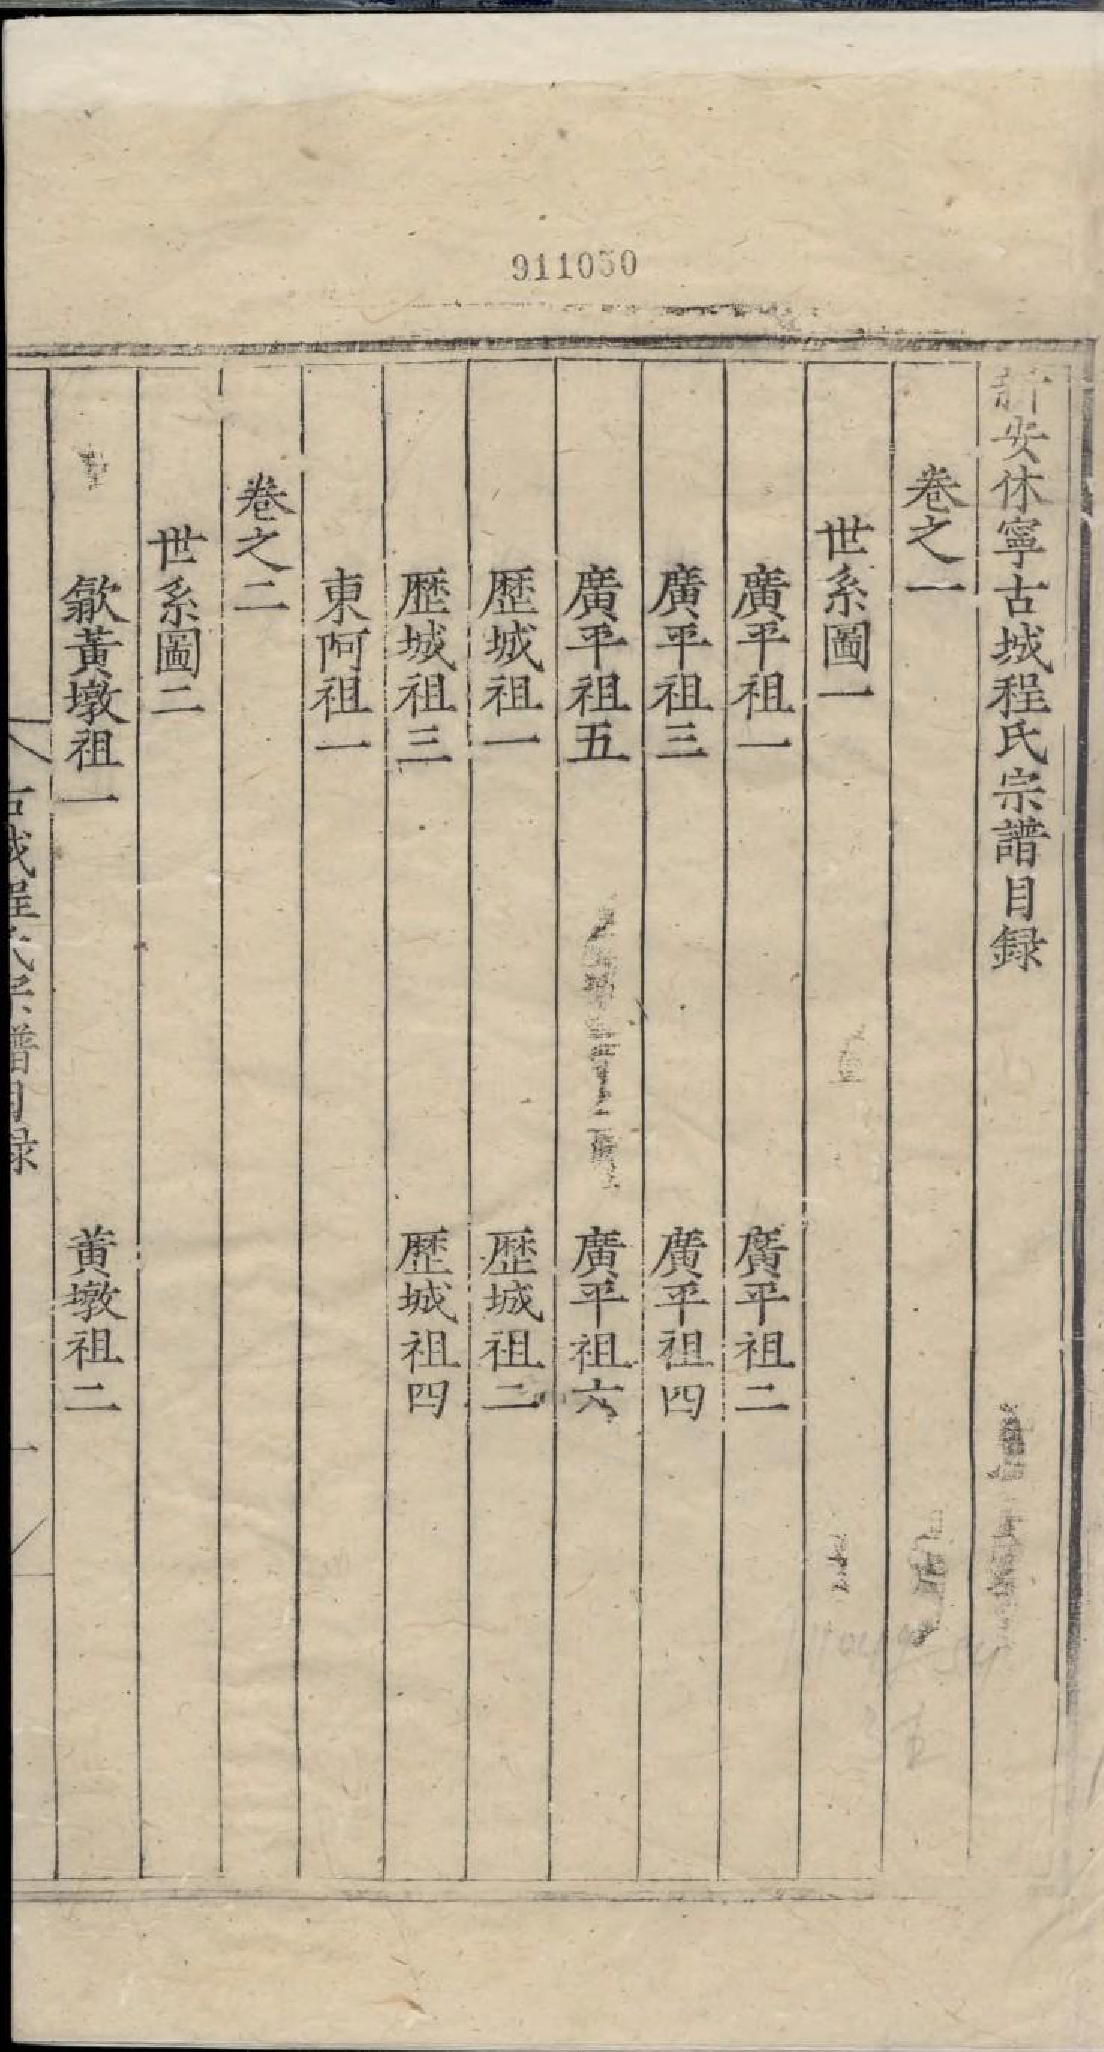 911050
新安休寧古城程氏宗譜目録
卷之一
世系圖一
廣平祖一 廣平祖二
廣平祖三 廣平祖四
廣平祖五 廣平祖六
歷城祖一 歷城祖二
歷城祖三 歷城祖四
東阿祖一
卷之二
世系圖二
歙黃墩祖一 黃墩祖二
古城程氏宗譜目録 一